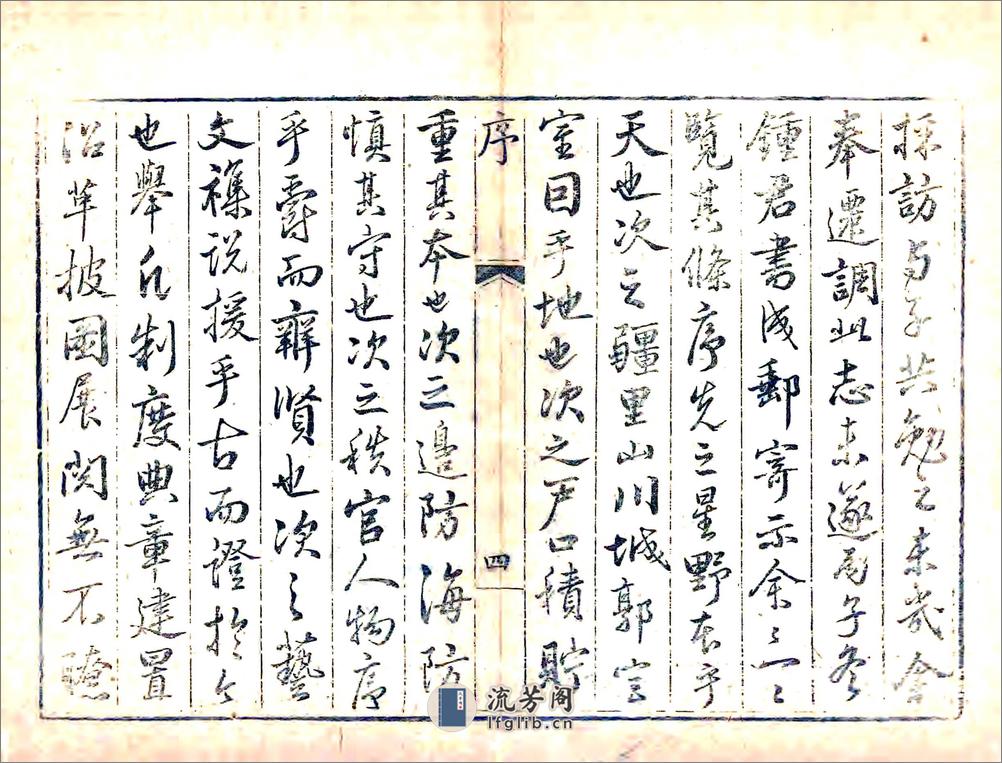 採訪与子共勉之未幾余
奉遷調此志未遂尾子冬
鍾君書成郵寄示余余一一
覽其條序先之星野本乎
天也次之疆里山川城郭官
室因乎地也次之戶口積貯
序
四
重其本也次之邊防海防
慎其守也次之秩官人物序
乎爵而辨賢也次之藝
文襍説援乎古而證於今
也舉凡制度典章建置
沿革披圖展閱無不瞭
流芳阁
lfglib.cn